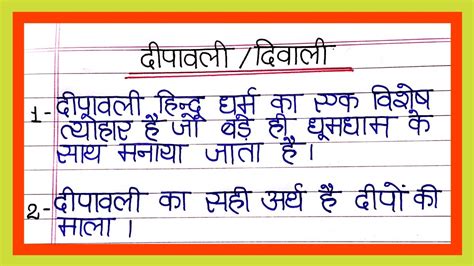 दीपावली / दिवाली
1- दीपावली हिन्दू धर्म का एक विशेष
त्योहार है जो बड़े ही धूमधाम के
साथ मनाया जाता है।
2- दीपावली का सही अर्थ है दीपों की
माला।